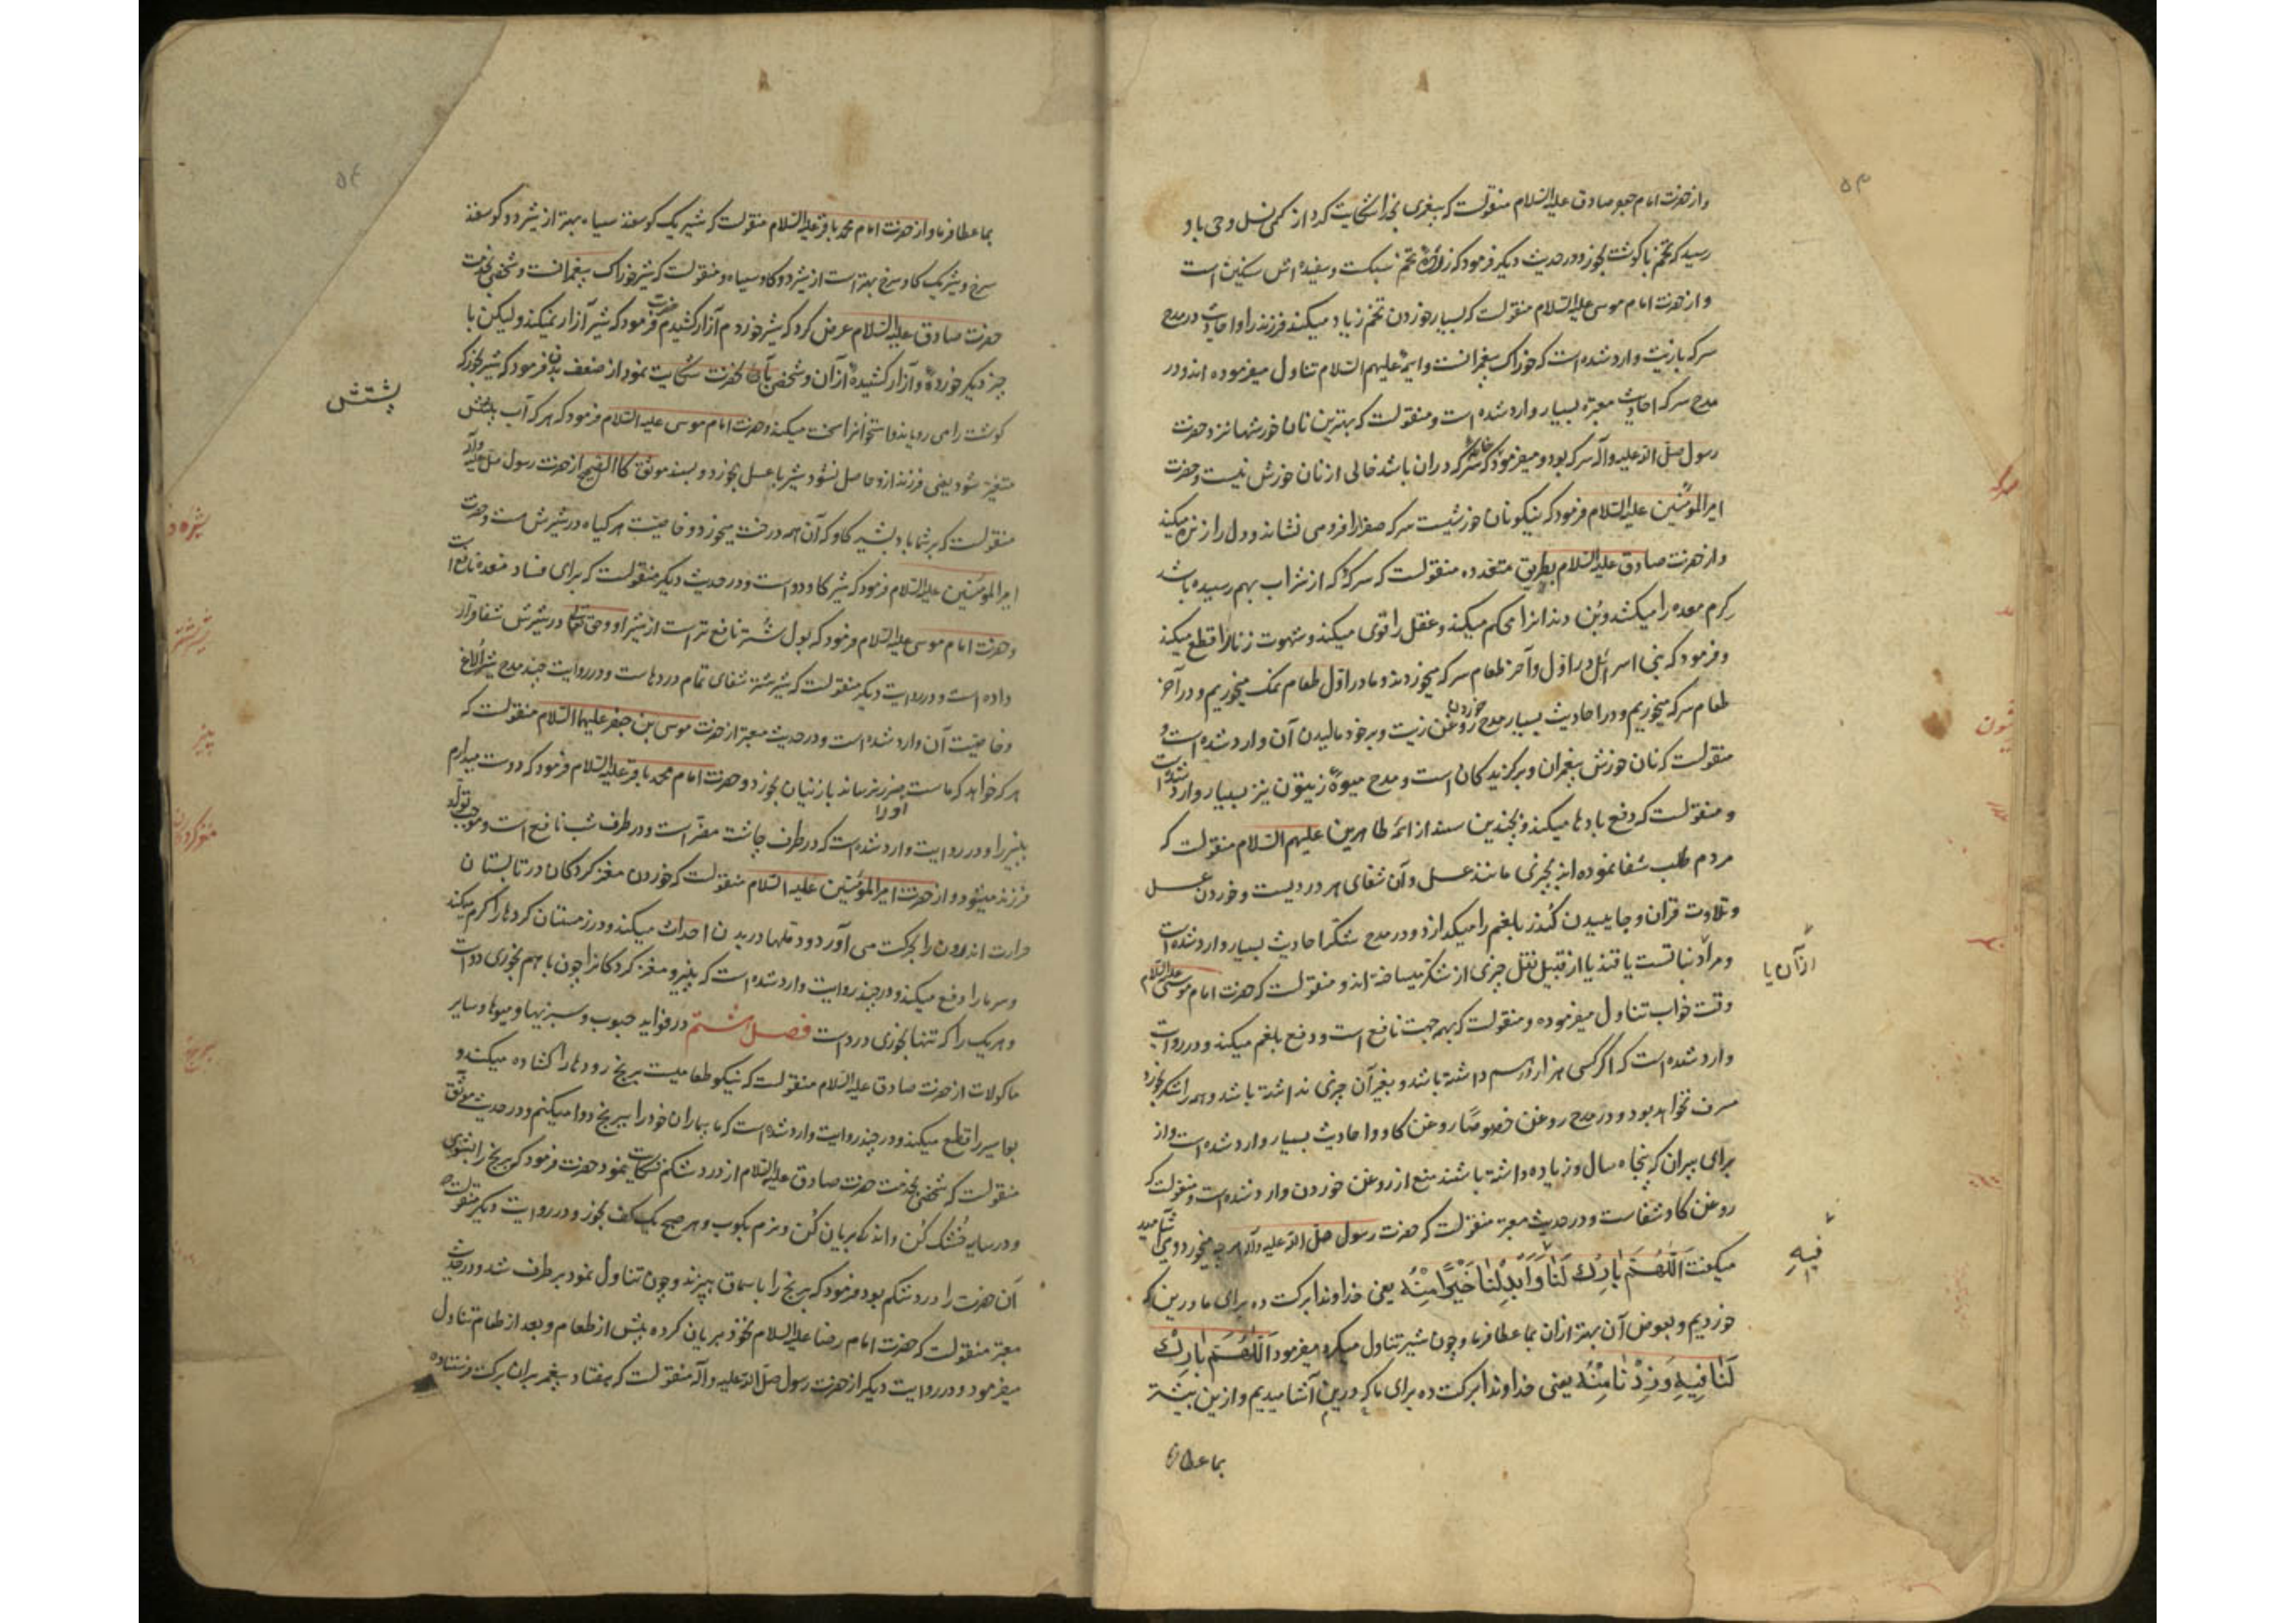 و از حضرت امام جعفر صادق علیه السّلام منقولست که پیغمبری بخدا شکایت کرد از کمی نسل وحی باو
رسید که تخم با گوشت بخور و در حدیث دیگر فرمود که زردهٔ تخم سبکست و سفیده‌اش سنگین است
و از حضرت امام موسی علیه السّلام منقولست که بسیار خوردن تخم زیاد میکند فرزند را و احادیث در مدح
سرکه با زیت وارد شده است که خوراک پیغمبرانست و ایمّه علیهم السّلام تناول میفرموده اند و در
مدح سرکه احادیث معتبره بسیار وارد شده است و منقولست که بهترین نان خورشها نزد حضرت
رسول صلی الله علیه و آله سرکه بود و میفرمود که خانهٔ که سرکه دران باشد خالی از نان خورش نیست و حضرت
امیر المؤمنین علیه السّلام فرمود که نیکو نان خورشیست سرکه صفرا را فرو می نشاند و دل را زنده میکند
و از حضرت صادق علیه السّلام بطریق متعدده منقولست که سرکهٔ که از شراب بهم رسیده باشد
کِرم معده را میکشد و بُن دندانرا محکم میکند و عقل را قوی میکند و شهوت زنا را قطع میکند
و فرمود که بنی اسرائیل در اوّل و آخر طعام سرکه میخوردند و ما در اوّل طعام نمک میخوریم و در آخر
طعام سرکه میخوریم و در احادیث بسیار مدح خوردن روغن زیت و بر خود مالیدن آن وارد شده است و
منقولست که نان خورش پیغمبران و برگزیدگان است و مدح میوهٔ زیتون نیز بسیار وارد شده است
و منقولست که دفع بادها میکند و بچندین سند از ائمّه طاهرین علیهم السّلام منقولست که
مردم طلب شفا ننموده اند بچیزی مانند عسل و آن شفای هر دردیست و خوردن عسل
و تلاوت قران و جاییدن کُندر بلغم را میگدازد و در مدح شکر احادیث بسیار وارد شده است
و مراد نباتست یا قند یا از قبیل نقل چیزی از شکر میساخته اند و منقولست که حضرت امام موسی علیه السّلام
از آن یا
وقت خواب تناول میفرموده و منقولست که بهمه جهت نافع است و دفع بلغم میکند و در روایت
وارد شده است که اگر کسی هزار درهم داشته باشد و بغیر آن چیزی نداشته باشد و همه را شکر بخرد
مسرف نخواهد بود و در مدح روغن خصوصًا روغن گاو و احادیث بسیار وارد شده است و از
برای پیران که پنجاه سال و زیاده داشته باشند منع از روغن خوردن وارد شده است و منقولست که
روغن گاو شفاست و در حدیث معتبر منقولست که حضرت رسول صلی الله علیه و آله هر چه میخورد و می آشامید
میگفت اَللّٰهُمَّ بَارِكْ لَنَا وَاَبْدِلْنَا خَيْرًا مِنْهُ یعنی خداوندا برکت ده برای ما درین که
فِيهِ
خوردیم و بعوض آن بهتر ازان بما عطا فرما و چون شیر تناول میکرد میفرمود اَللّٰهُمَّ بَارِكْ
لَنَا فِيهِ وَزِدْنَا مِنْهُ یعنی خداوندا برکت ده برای ما که درین آشامیدیم و ازین بیشتر
بما عطا فرما
بما عطا فرما و از حضرت امام محمد باقر علیه السّلام منقولست که شیر یک گوسفند سیاه بهتر از شیر دو گوسفند
سرخ و شیر یک گاو سرخ بهتر است از شیر دو گاو سیاه و منقولست که شیر خوراک پیغمبرانست و شخصی بخدمت
حضرت صادق علیه السّلام عرض کرد که شیر خوردم آزار کشیدم حضرت فرمود که شیر آزار نمیکند و لیکن با
چیز دیگر خوردهٔ و آزار کشیدهٔ از آن و شخصی بآن حضرت شکایت نمود از ضعف بدن فرمود که شیر بخور که
گوشت را می رویاند و استخوانرا سخت میکند و حضرت امام موسی علیه السّلام فرمود که هر که آب پشتش
پشتش
متغیّر شود یعنی فرزند ازو حاصل نشود شیر با عسل بخورد و بسند موثق کالصّحیح از حضرت رسول صلی الله علیه و آله
منقولست که بر شما باد بشیر گاو که آن همه درخت میخورد و خاصیّت هر گیاه در شیرش هست و حضرت
امیر المؤمنین علیه السّلام فرمود که شیر گاو دواست و در حدیث دیگر منقولست که برای فساد معده نافع است
و حضرت امام موسی علیه السّلام فرمود که بول شتر نافع تر است از شیر او و حق تعالی در شیرش شفا قرار
داده است و در روایت دیگر منقولست که شیر شتر شفای تمام دردهاست و در روایت چند مدح شیر الاغ
و خاصیّت آن وارد شده است و در حدیث معتبر از حضرت موسی بن جعفر علیهما السّلام منقولست که
هر که خواهد که ماست اورا ضرر نرساند با زنیان بخورد و حضرت امام محمد باقر علیه السّلام فرمود که دوست میدارم
پنیر را و در روایت وارد شده است که در طرف چاشت مضرّ است و در طرف شب نافع است و موجب تولّد
فرزند میشود و از حضرت امیر المؤمنین علیه السّلام منقولست که خوردن مغز کردکان در تابستان
حرارت اندرون را بحرکت می آورد و دملها در بدن احداث میکند و در زمستان گردها را گرم میکند
و سرما را دفع میکند و در چند روایت وارد شده است که پنیر و مغز کردکانرا چون با هم بخوری دواست
و هر یک را که تنها بخوری درد است فصل ششم در فواید حبوب و سبزیها و میوها و سایر
ماکولات از حضرت صادق علیه السّلام منقولست که نیکو طعامیست برنج رودها را کشاده میکند و
بواسیر را قطع میکند و در چند روایت وارد شده است که ما بیماران خود را ببرنج دوا میکنیم و در حدیث موثق
منقولست که شخصی بخدمت حضرت صادق علیه السّلام از درد شکم شکایت نمود حضرت فرمود که برنج را بشوی
و در سایه خُشک کُن و اندکی بریان کُن و نرم بکوب و هر صبح یک کف بخور و در روایت دیگر منقولست که
آن حضرت را درد شکم بود فرمود که برنج را با سماق بپزند و چون تناول نمود برطرف شد و در حدیث
معتبر منقولست که حضرت امام رضا علیه السلام نخود بریان کرده پیش از طعام و بعد از طعام تناول
میفرمود و در روایت دیگر از حضرت رسول صلّی الله علیه و آله منقولست که هفتاد پیغمبر بران برکت فرستاده
سرکه
زیتون
شیر شتر
پنیر
مغز کردکان
برنج